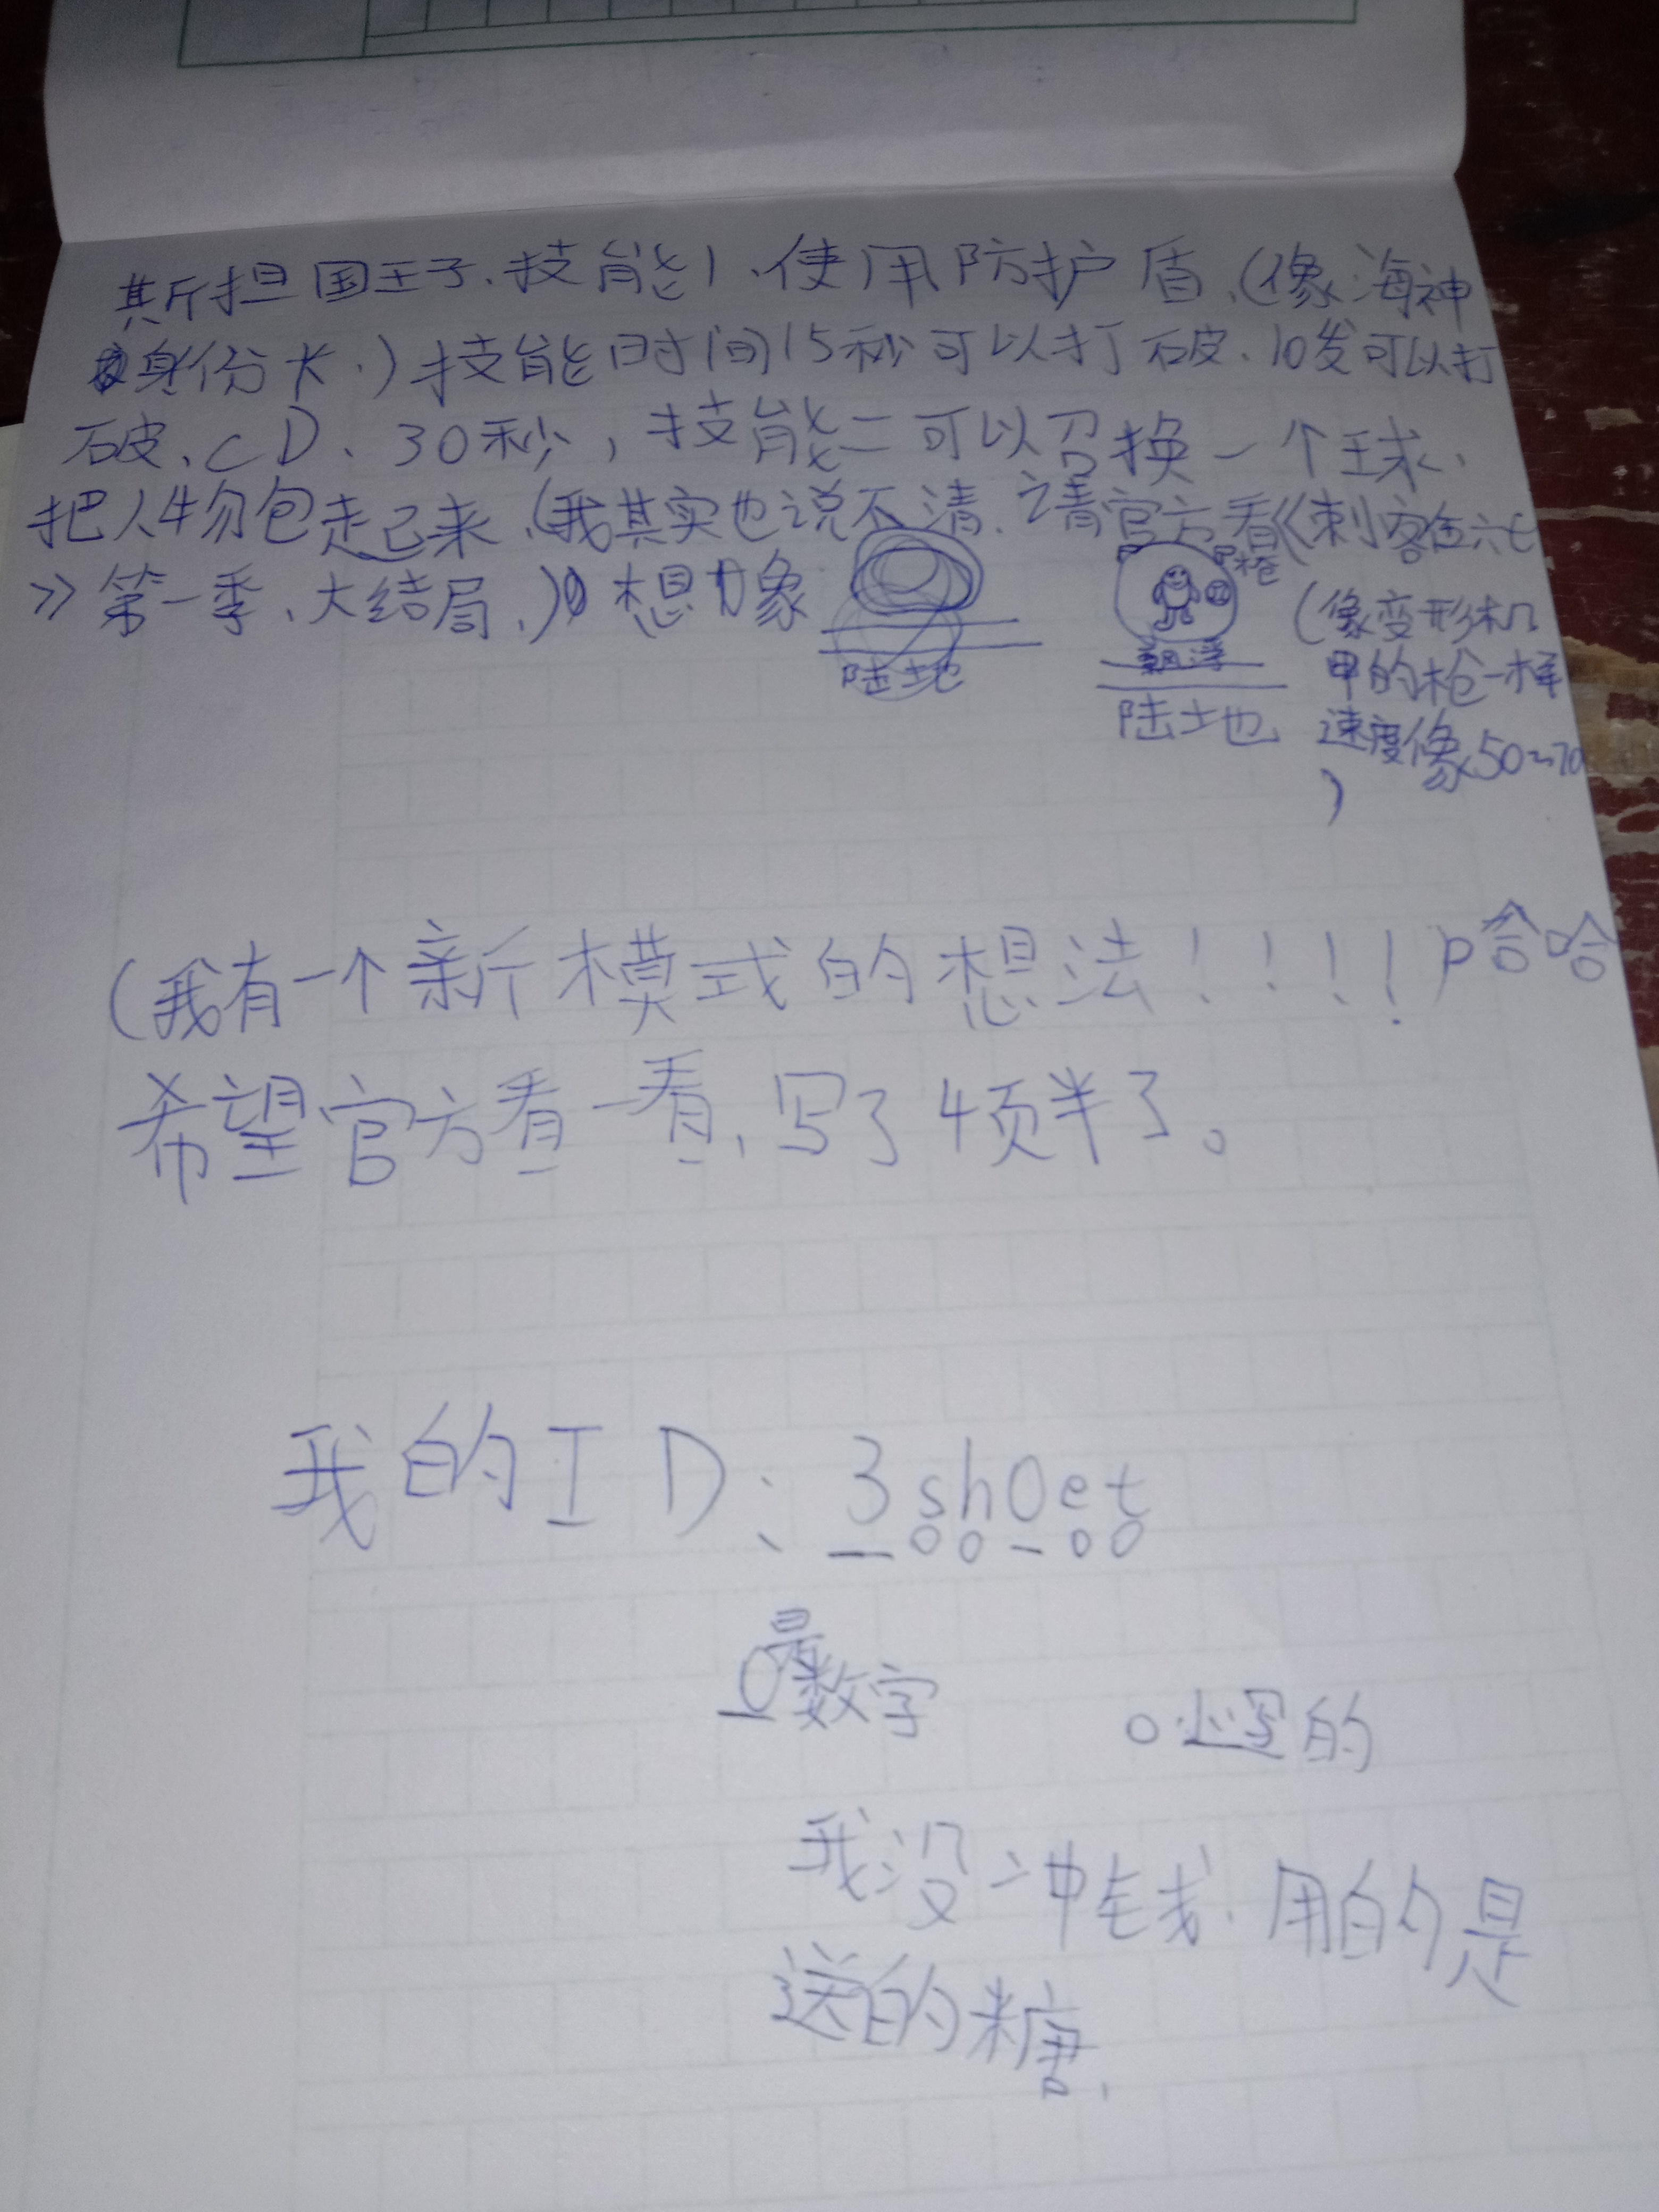 斯担国王子、技能1、使用防护盾、(像海神
身份卡、)技能时间15秒可以打破、10发可以打
破、CD、30秒,技能二可以召换一个球、
把人物包起来、(我其实也说不清、请官方看《刺客伍六七
》第一季、大结局、)想象
枪
飘浮
陆地
陆地
(像变形机
甲的枪一样
速度像50~70
)
(我有一个新模式的想法!!!!)哈哈
希望官方看一看、写了4页半了。
我的ID:3sh0et
0是数字
小写的
我没冲钱、用的是
送的糖、